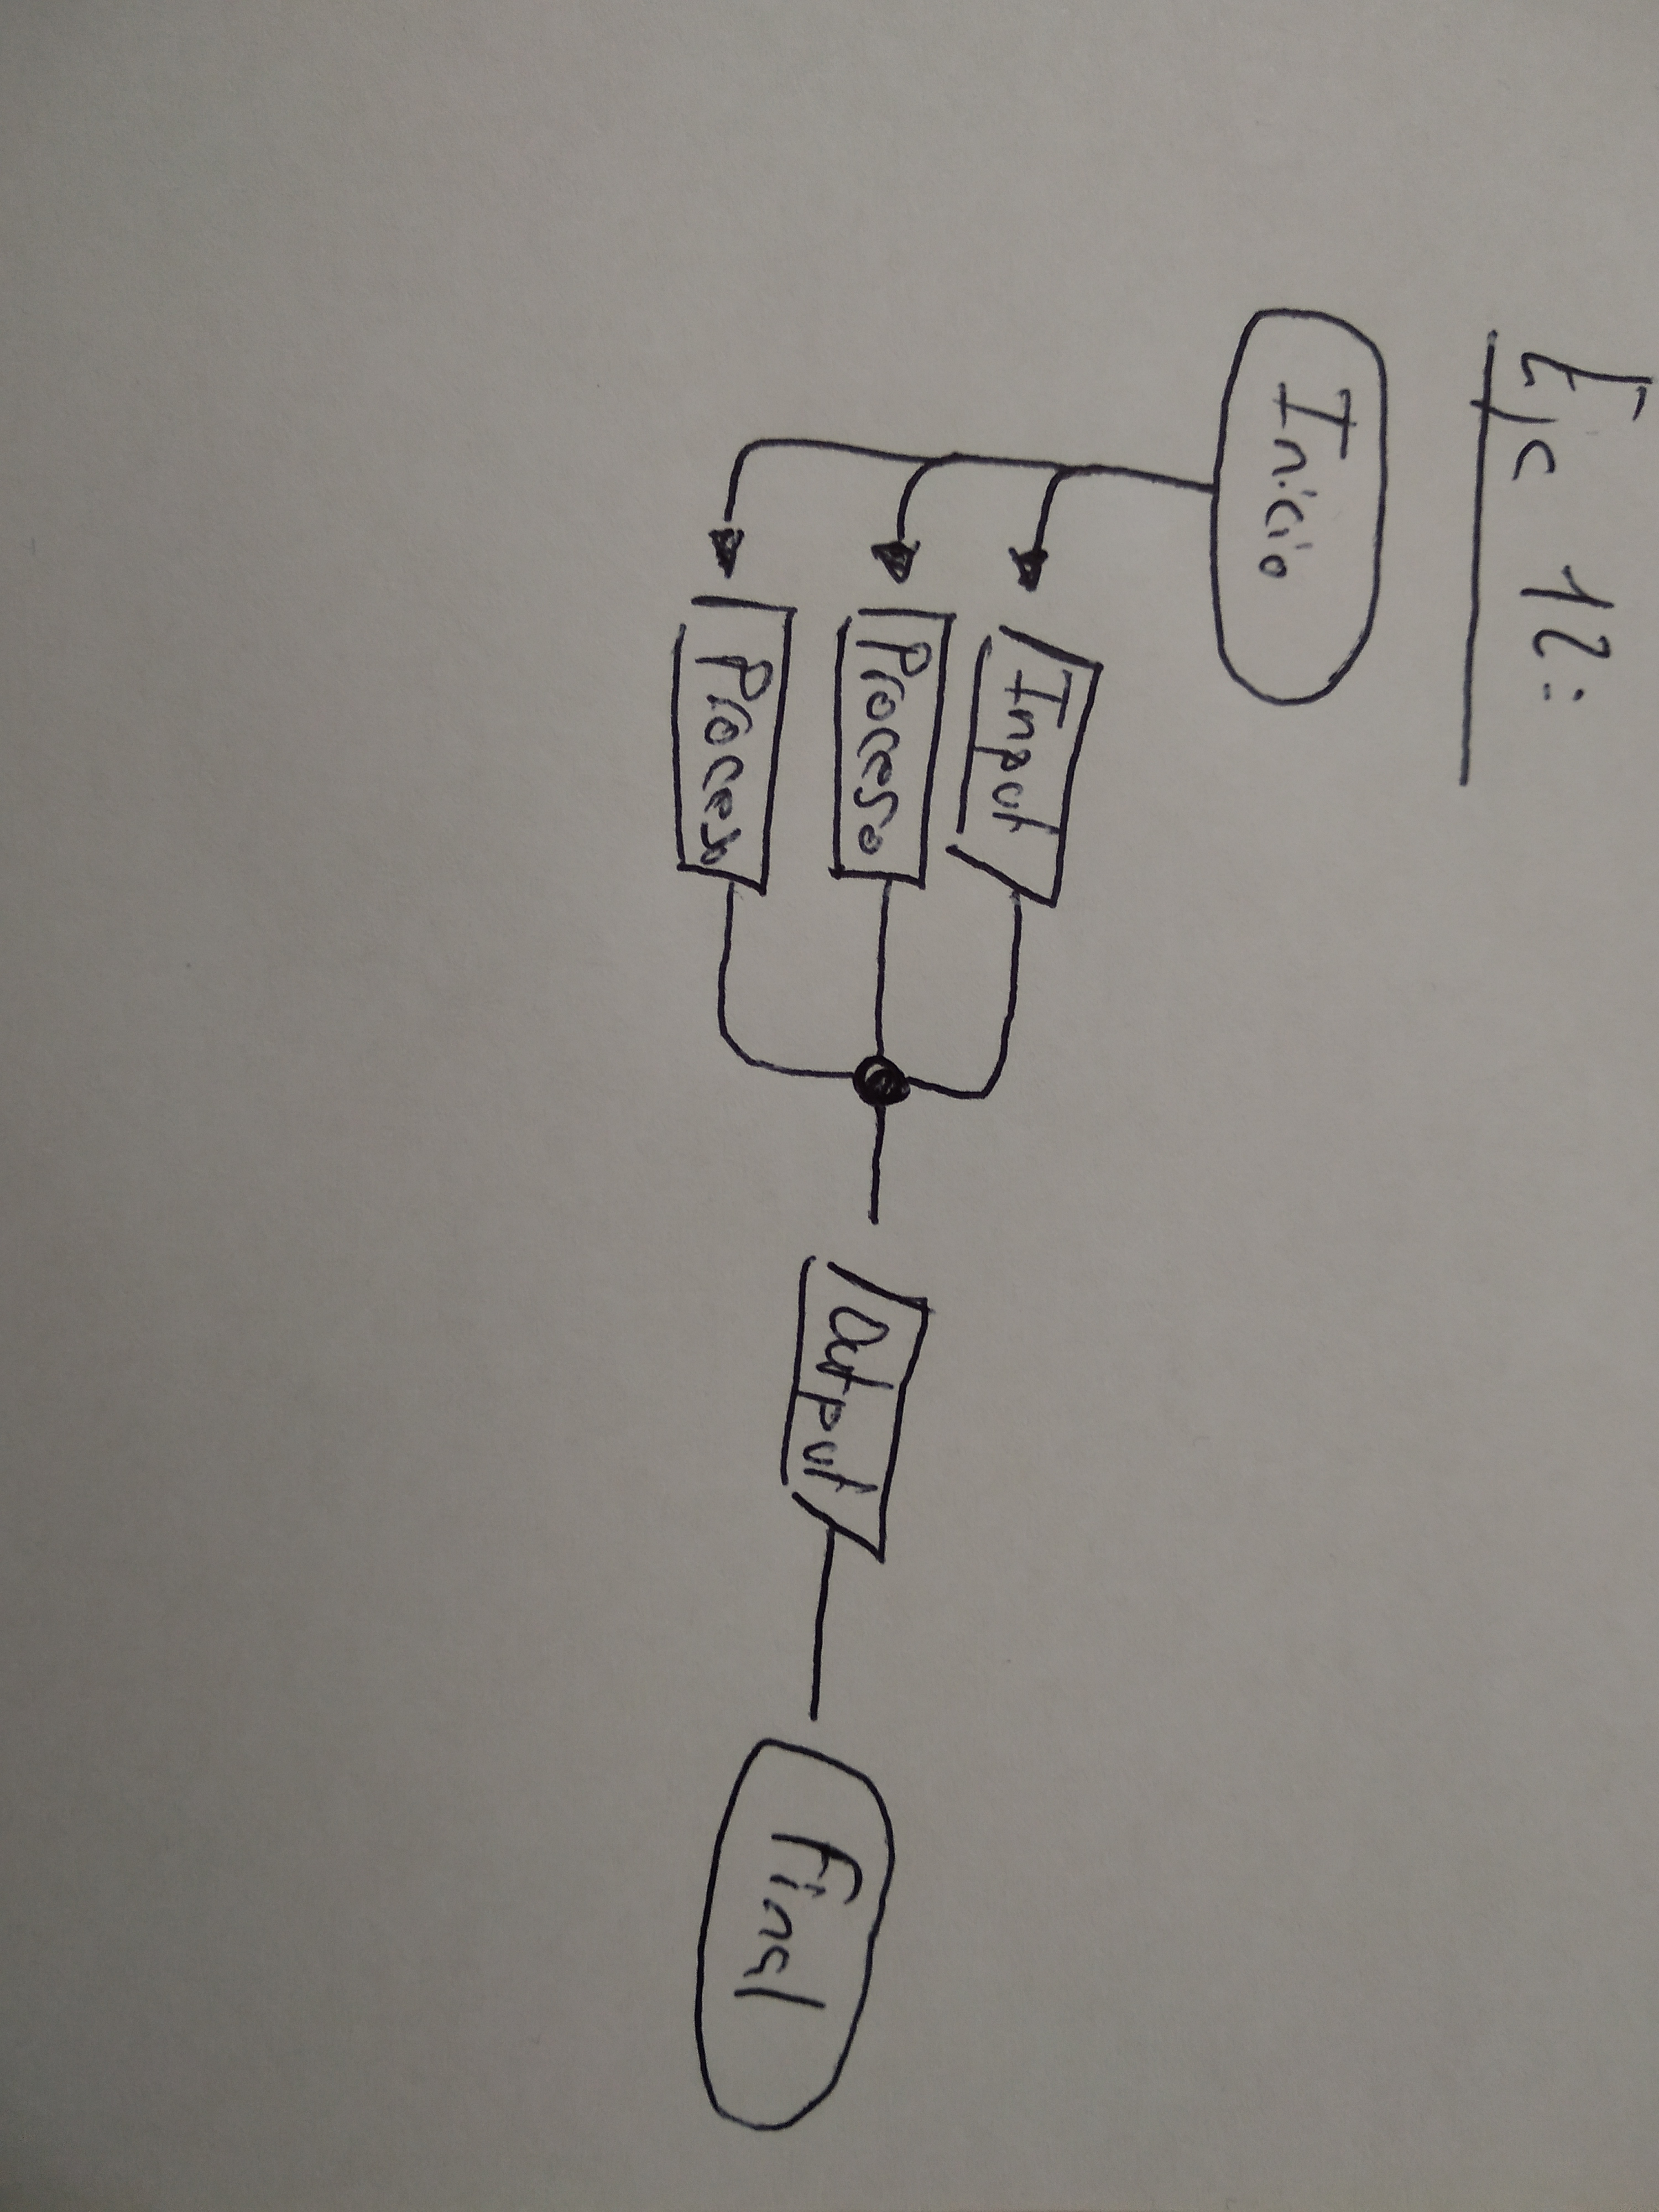 Ejc 12:
Inicio
Input
Proceso
Proceso
Output
Final